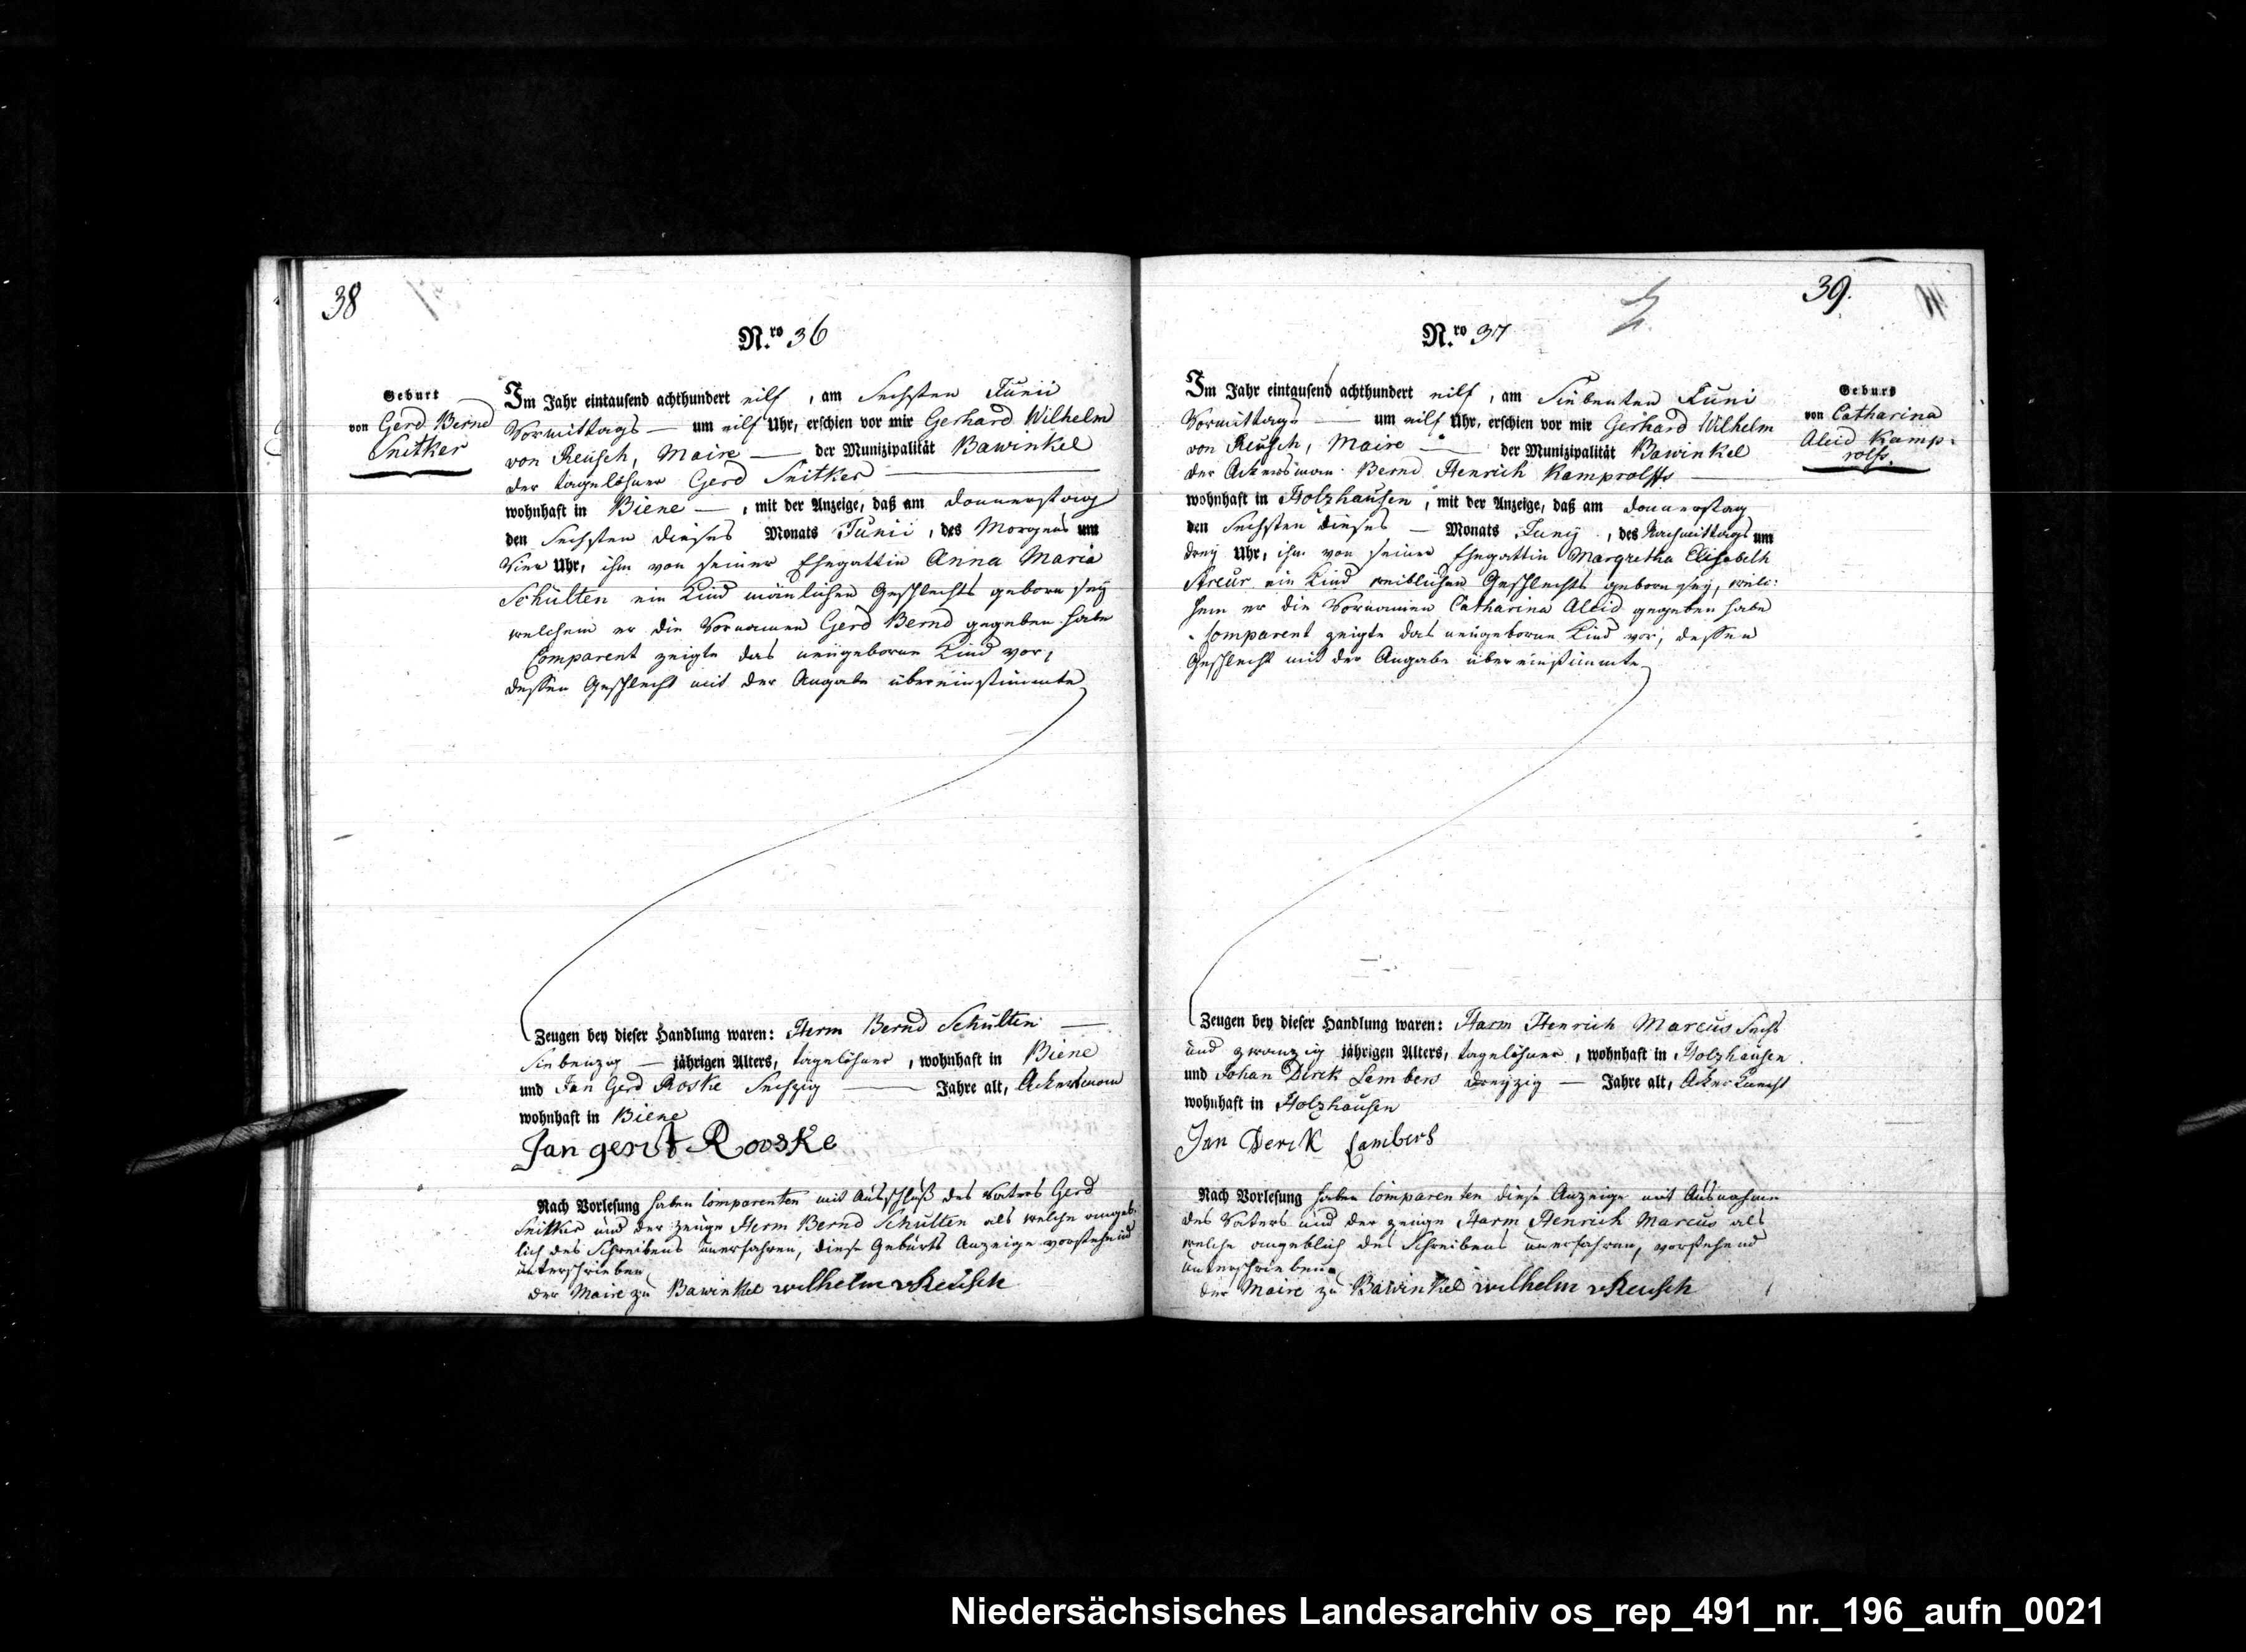 38
N.ro 36
Geburt
von Gerd Bernd
Snitker
Im Jahr eintausend achthundert eilf, am Sechsten Junii
Vormittags — um eilf Uhr, erschien vor mir Gerhard Wilhelm
von Reusch, Maire — der Munizipalität Bawinkel
der tagelöhner Gerd Snitker —
wohnhaft in Biene —, mit der Anzeige, daß am Donnerstag
den Sechsten dieses Monats Junii, des Morgens um
Vier Uhr, ihm von seiner Ehegattin Anna Maria
Schulten ein Kind mänlichen Geschlechts geboren sey
welchem er die Vornamen Gerd Bernd gegeben habe
Comparent zeigte das neugeborne Kind vor,
dessen Geschlecht mit der Angabe übereinstimmte
Zeugen bey dieser Handlung waren: Herm Bernd Schulten —
Siebenzig — jährigen Alters, tagelöhner, wohnhaft in Biene
und Jan Gerd Roske Sechzig — Jahre alt, Ackersmann
wohnhaft in Biene
Jan gerit Rooske
Nach Vorlesung haben Comparenten mit Ausschluß des Vaters Gerd
Snitker und der zeuge Herm Bernd Schulten als welche angeb-
lich des Schreibens unerfahren, diese Geburts Anzeige vorstehend
unterschrieben
der Maire zu Bawinkel Wilhelm vReusch
39.
N.ro 37
Geburt
von Catharina
Aleid Kamp-
rolfs.
Im Jahr eintausend achthundert eilf, am Siebenten Juni
Vormittags — um eilf Uhr, erschien vor mir Gerhard Wilhelm
von Reusch, Maire — der Munizipalität Bawinkel
der Ackersman Bernd Henrich Kamprolffs —
wohnhaft in Holzhausen, mit der Anzeige, daß am Donnerstag
den Sechsten dieses — Monats Juny, des Nachmittags um
drey Uhr, ihm von seiner Ehegattin Margretha Elisabeth
ein Kind weiblichen Geschlechts geboren sey, wel-
chem er die Vornamen Catharina Aleid gegeben habe
Comparent zeigte das neugeborne Kind vor, dessen
Geschlecht mit der Angabe übereinstimmte
Zeugen bey dieser Handlung waren: Harm Henrich Marcus Sechs
und zwanzig jährigen Alters, tagelöhner, wohnhaft in Holzhausen
und Johan Dirck Lambers dreyzig — Jahre alt, Acker Knecht
wohnhaft in Holzhausen
Jan Derck Lambers
Nach Vorlesung haben Comparenten diese Anzeige mit Ausnahme
des Vaters und der zeuge Harm Henrich Marcus als
welche angeblich des Schreibens unerfahren, vorstehend
unterschrieben
der Maire zu Bawinkel Wilhelm vReusch
Niedersächsisches Landesarchiv os_rep_491_nr._196_aufn_0021